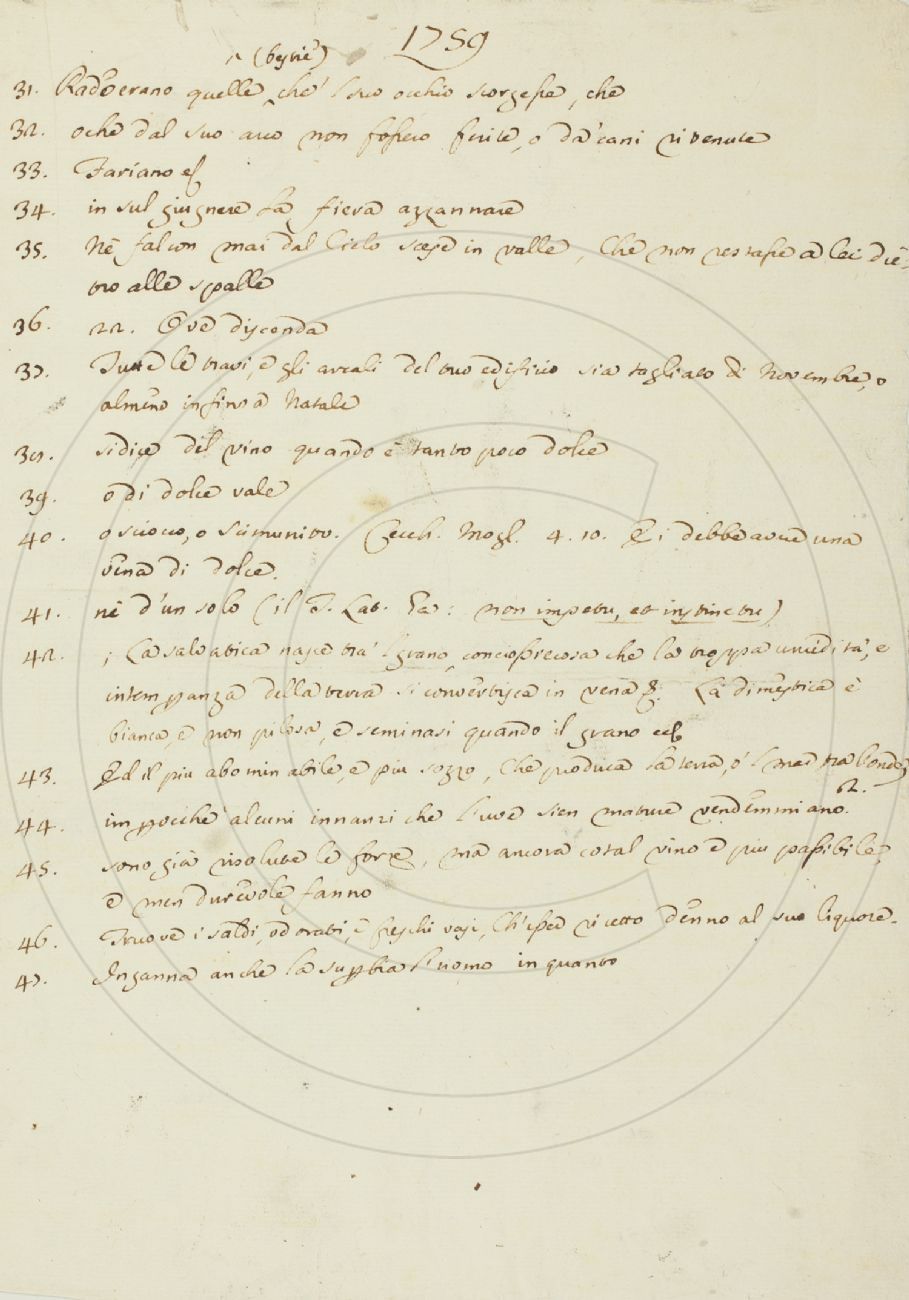 1759
^ (bestie)
31. Rad'erano quelle ^ che 'l suo occhio scorgesse, che
32. oche dal suo arco non fossero ferite, o da' cani ritenute
33. Fariano ec
34. in sul giugnere la fiera azzannare
35. Nè falcon mai dal Cielo scese in valle, Che non restasse a lei die-
tro alle spalle
36. 22. Ove disconda
37. Tutte le travi, e gli arcali del tuo edificio sia togliato di Novembre, o
almeno infino a Natale
38. si dice del vino quando è tanto poco dolce
39. o di dolce vale
40. o sciocco, o scimunito. Cecch. Mogl. 4. 10. E' i debbe avere una
vena di dolce.
41. nè d'un solo (il T. Lat. ha: non impetu, et instinctu)
42. ; La salvatica nasce tra 'l grano, conciossiecosa che la troppa umedità, e
intemperanza della terra si convertisca in vena &. La dimestica è
bianca, e non pilosa, e seminasi quando il grano ec
43. Ed il piu abominabile, e piu sozzo, Che produca la terra, o 'l mar, tra l'onde
44. impocchè alcuni innanzi che l'uve sien mature vendemmiano. 62.
45. sono già risolute le forze, ma ancora cotal vino è piu passibile,
e men durevole fanno
46. Truove i saldi, odorati, e freschi vasi, Ch'esser ricetto denno al suo liquore.
47. Inganna anche la superbia l'uomo in quanto